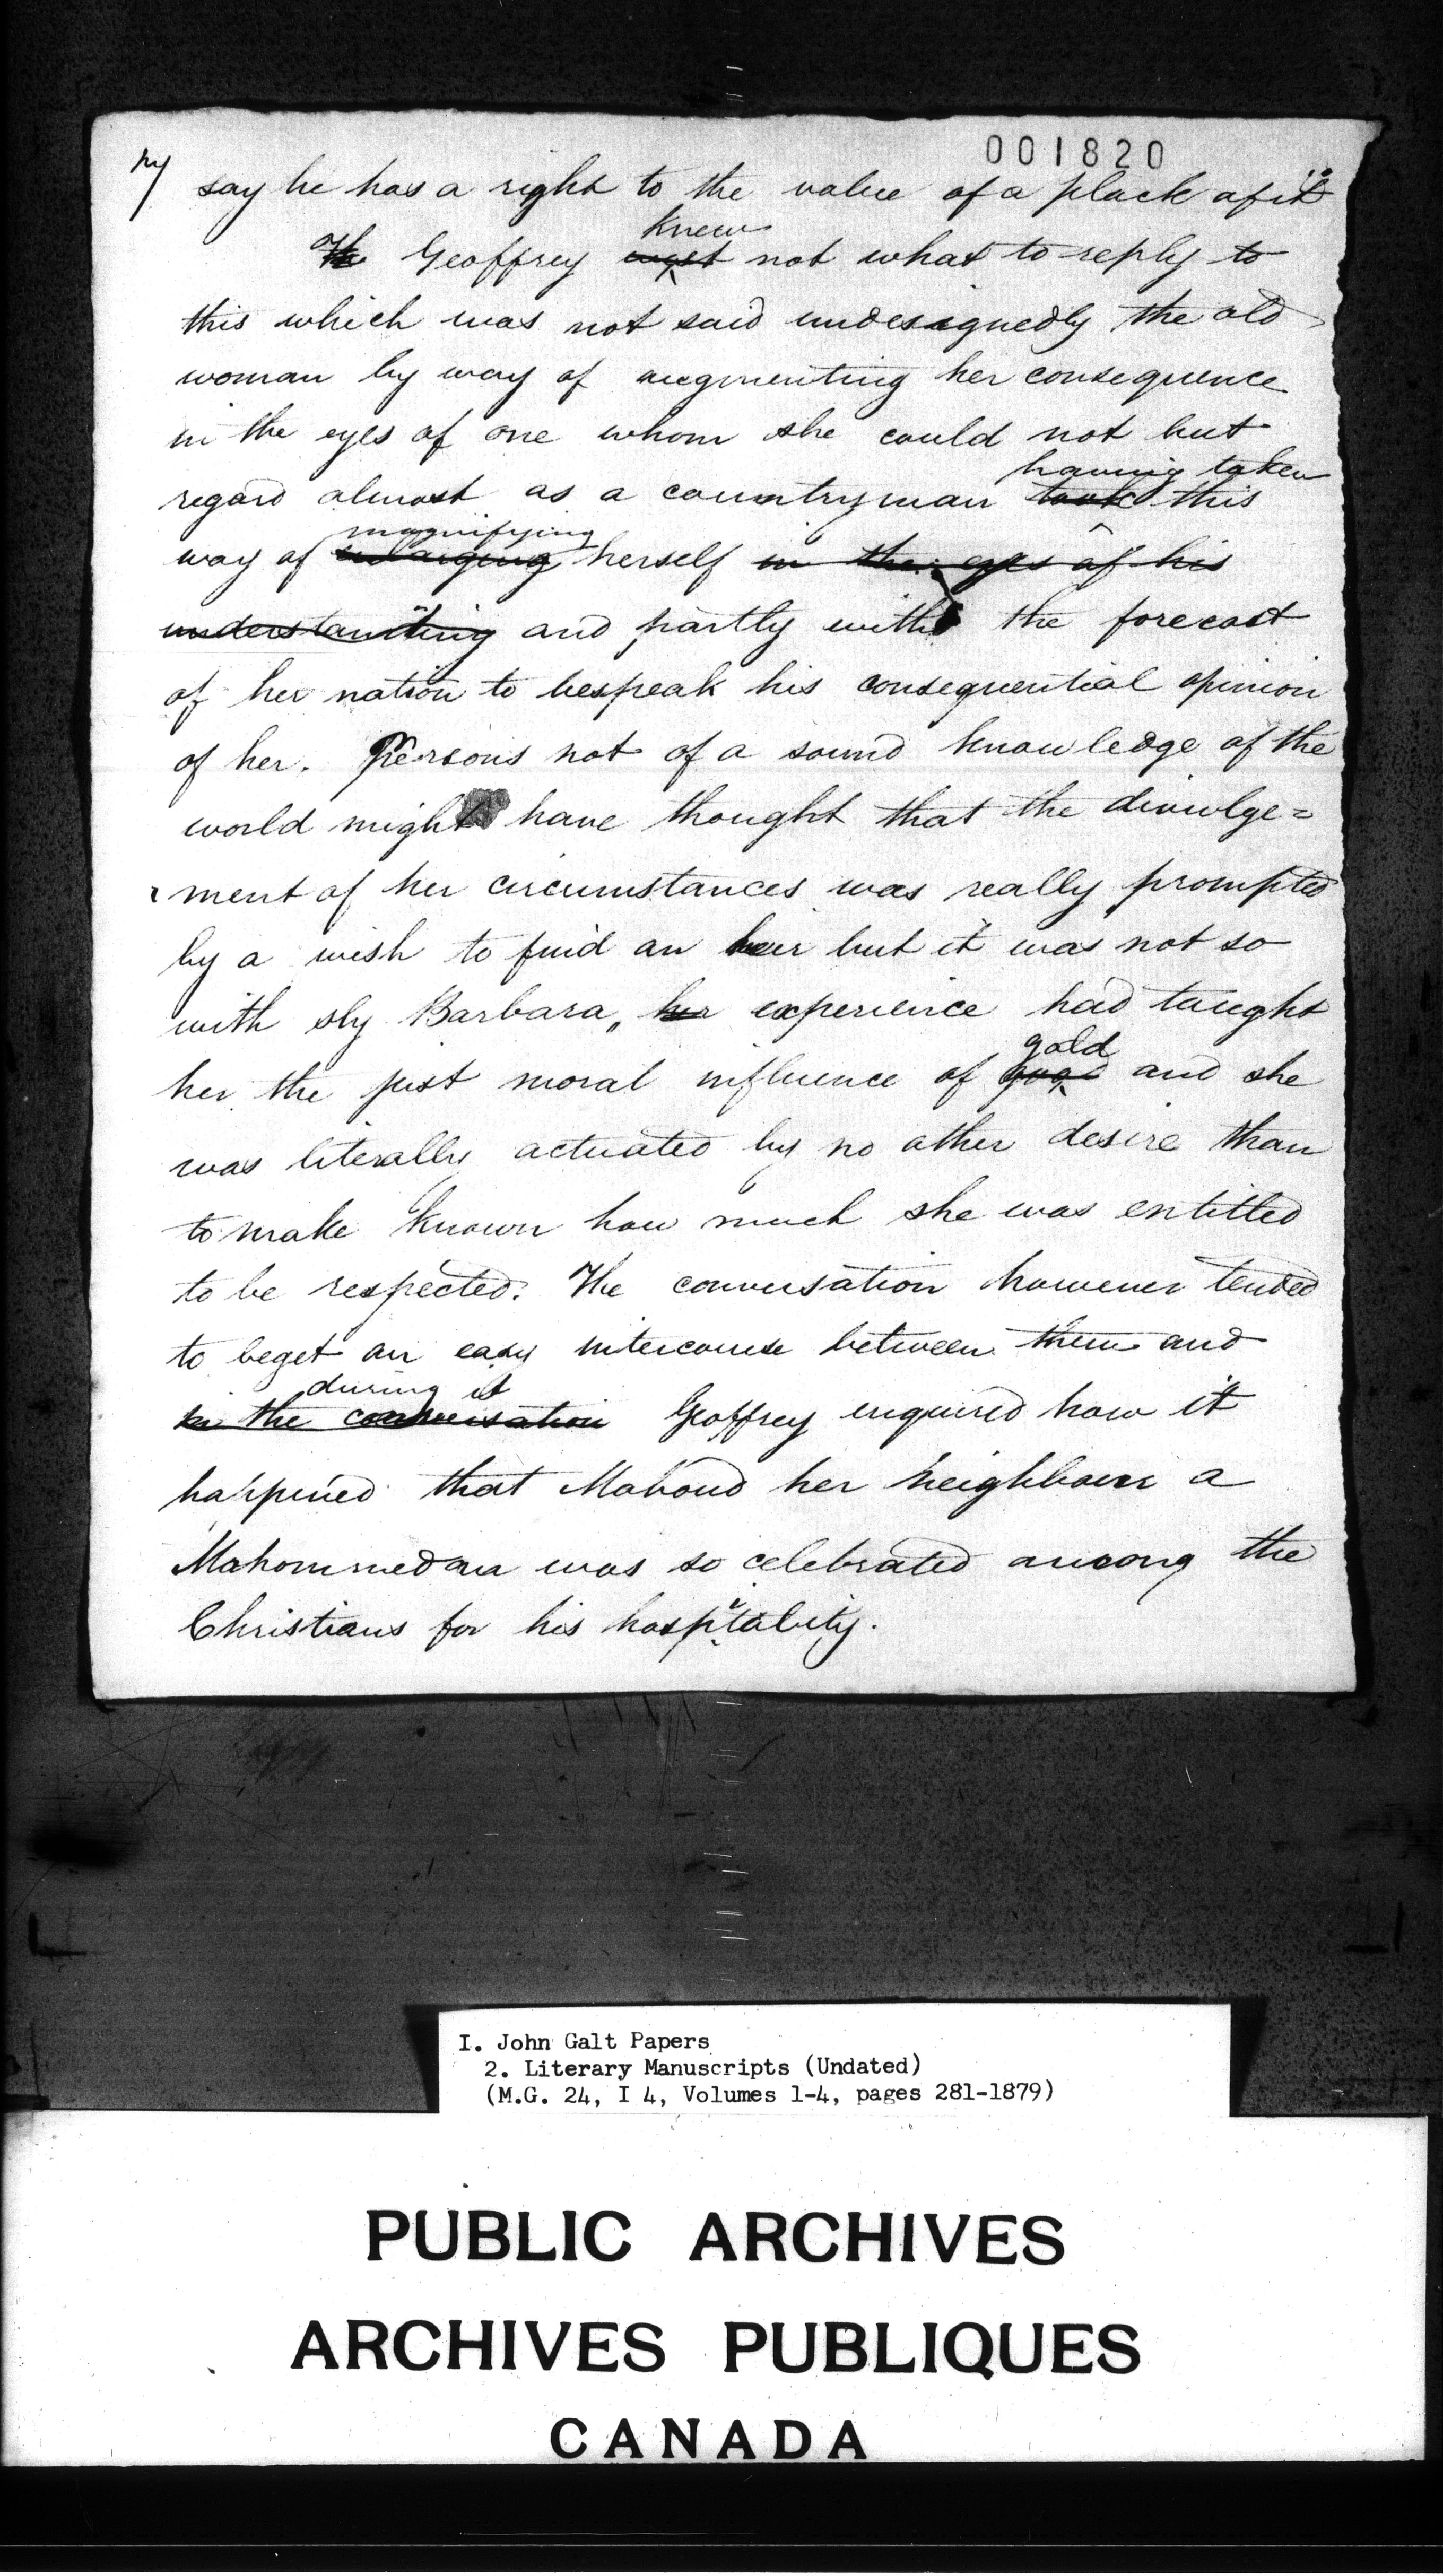 001820
say he has a right to the value of a plack of it"
The Geoffrey knew not what to reply to
this which was not said undesignedly the old
woman by way of augmenting her consequence
in the eyes of one whom she could not but
regard almost as a countryman took having taken this
way of enlarging magnifying herself in the eyes of his
understanding and partly with the forecast
of her nation to bespeak his consequential opinion
of her. Persons not of a sound knowledge of the
world might have thought that the divulge=
ment of her circumstances was really prompted
by a wish to find an heir but it was not so
with sly Barbara, her experience had taught
her the just moral influence of good gold and she
was literally actuated by no other desire than
to make known how much she was entitled
to be respected. The conversation however tended
to beget an easy intercourse between them and
in the conversation during it Geoffrey enquired how it
happined that Maboud her neighbour a
Mahommedan was so celebrated among the
Christians for his hospitality.
I. John Galt Papers
2. Literary Manuscripts (Undated)
(M.G. 24, I 4, Volumes 1-4, pages 281-1879)
PUBLIC ARCHIVES
ARCHIVES PUBLIQUES
CANADA